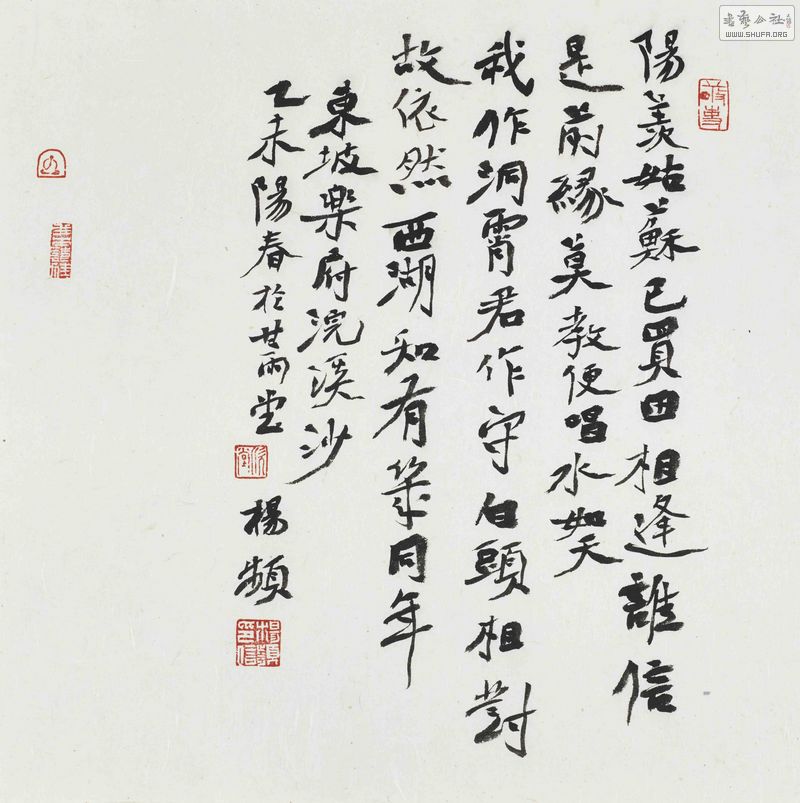 書藝公社
WWW.SHUFA.ORG
陽羨姑蘇已買田相逢誰信
是前緣莫教便唱水如天
我作洞霄君作守白頭相對
故依然西湖知有幾同年
東坡樂府浣溪沙
乙未陽春於甘雨堂
楊頻
楊頻印信